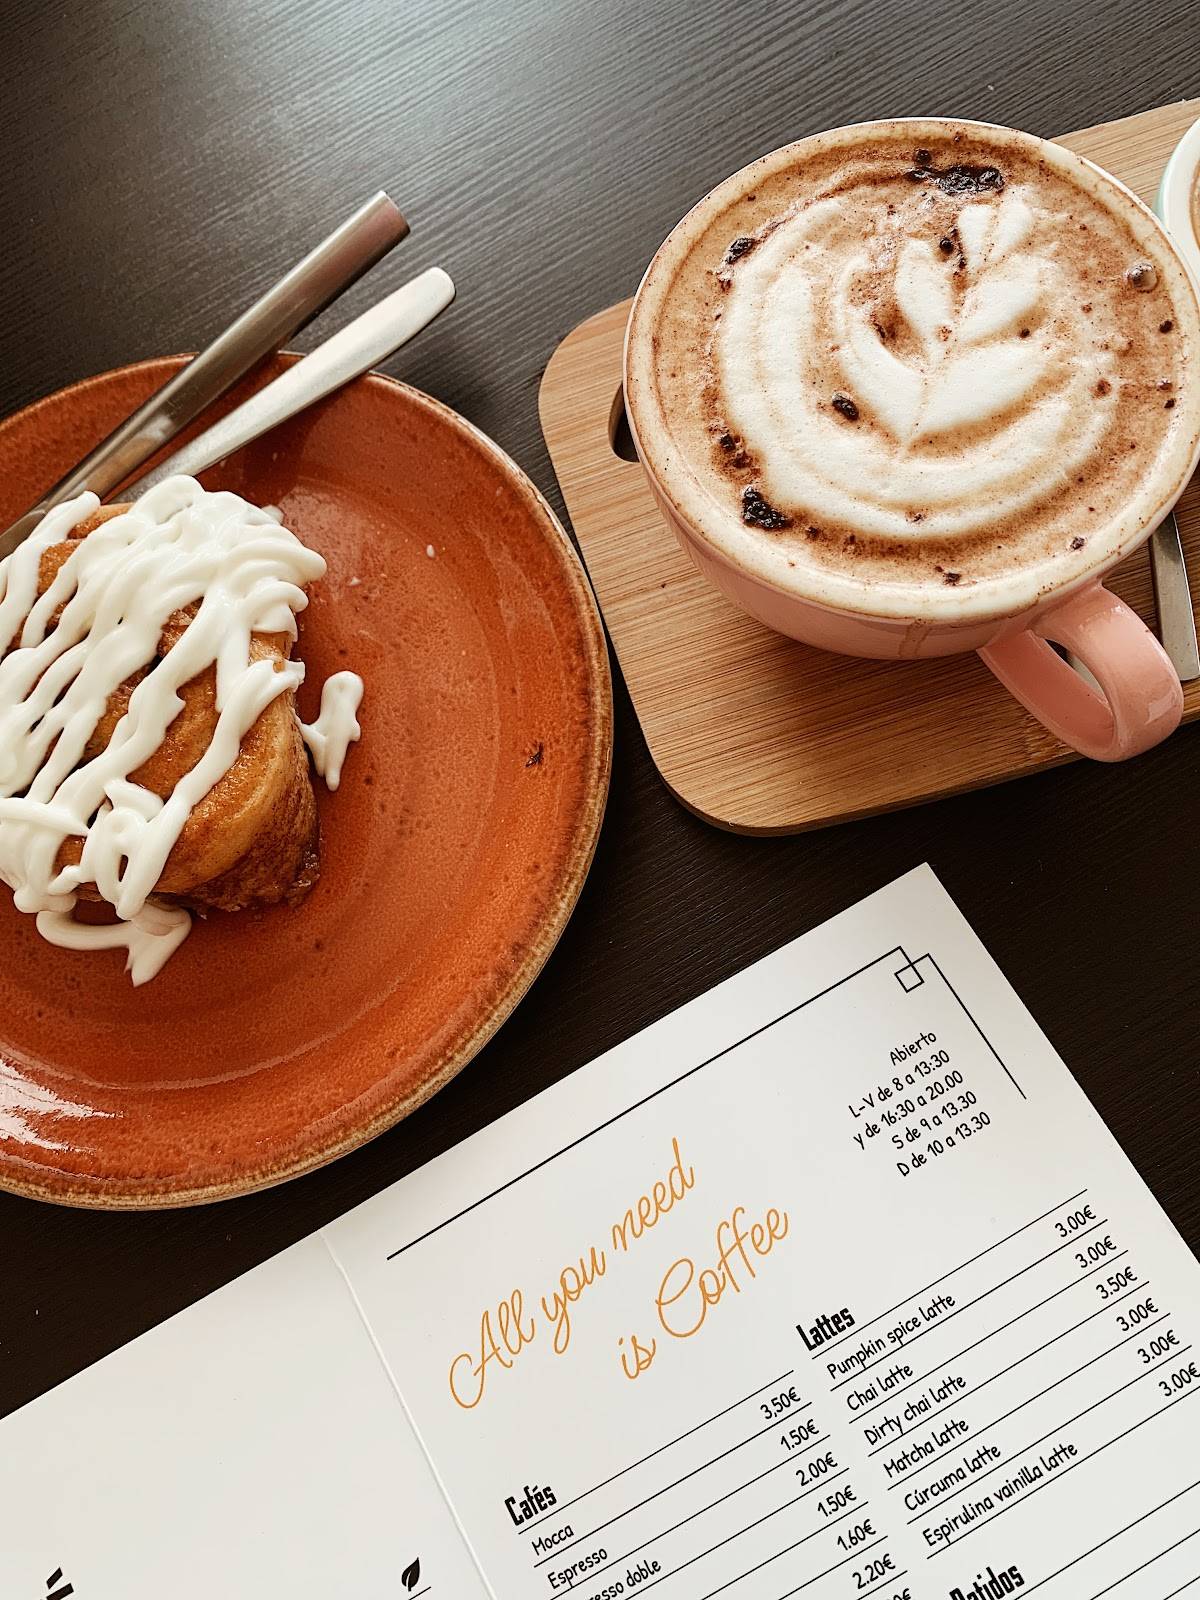 Abierto
L-V de 8 a 13:30
y de 16:30 a 20.00
S de 9 a 13.30
D de 10 a 13.30
All you need
is Coffee
Cafés
Mocca 3,50€
Espresso 1.50€
doble 2.00€
1.50€
1.60€
2.20€
Lattes
Pumpkin spice latte 3.00€
Chai latte 3.00€
Dirty chai latte 3.50€
Matcha latte 3.00€
Cúrcuma latte 3.00€
Espirulina vainilla latte 3.00€